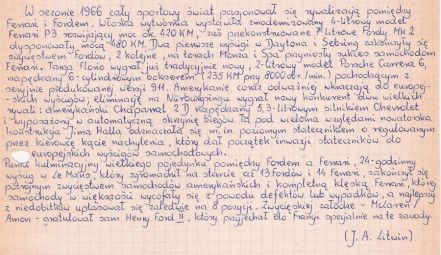 W sezonie 1966 cały sportowy świat pasjonował się rywalizacją pomiędzy
Ferrari i Fordem. Włoska wytwórnia wystawiła zmodernizowany 4-litrowy model
Ferrari P3 rozwijający moc ok. 420 KM, zaś przekonstruowane 7 litrowe Fordy Mk 2
dysponowały mocą 480 KM. Dwa pierwsze wyścigi w Daytona i Sebring zakończyły się
zwycięstwem Fordów, 2 kolejne, na torach Monza i Spa przyniosły sukces samochodom
Ferrari. Targa Florio wygrał już tradycyjnie nowy, 2-litrowy model Porsche Carrera 6,
napędzany 6-cylindrowym bokserem (235 KM przy 8000 obr./min.) pochodzącym z
seryjnie produkowanej wersji 911. Amerykanie coraz odważniej wkraczają do europej-
skich wyścigów, eliminację na Nürburgringu wygrał nowy konkurent dwu wielkich
rywali: amerykański Chaparral 2 D napędzany 5,3-litrowym silnikiem Chevrolet
i wyposażony w automatyczną skrzynię biegów. Ta pod wieloma względami nowatorska
konstrukcja Jima Halla odznaczała się m.in. poziomym statecznikiem o regulowanym
przez kierowcę kącie nachylenia, który dał początek inwazji stateczników do
europejskich wyścigów samochodowych.
Punkt kulminacyjny wielkiego pojedynku pomiędzy Fordem a Ferrari, 24-godzinny
wyścig w Le Mans, który zgromadził na starcie aż 13 Fordów i 14 Ferrari, zakończył się
potrójnym zwycięstwem samochodów amerykańskich i kompletną klęską Ferrari, której
samochody w większości wycofały się z powodu defektów lub wypadków, a najlepszy
z niedobitków uplasował się zaledwie na 8 pozycji. Zwycięskiej załodze - McLaren/
Amon - gratulował sam Henry Ford II, który przyjechał do Francji specjalnie na te zawody.
(J. A. Litwin)